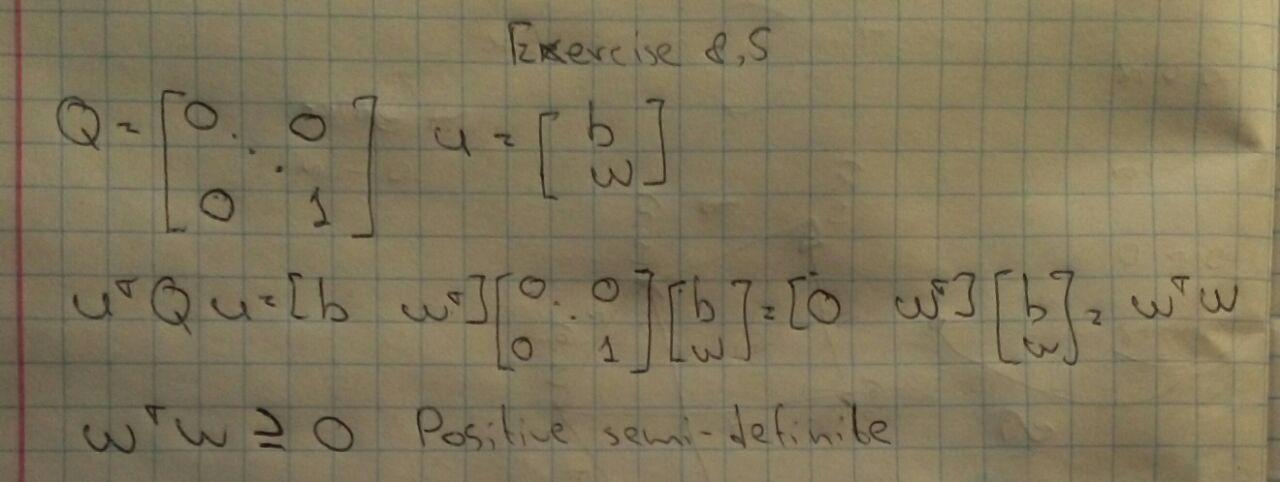 Exercise 8,5
Q = [0 ⋱ 0; 0 1] u = [b; w]
uᵀQu = [b wᵀ][0 ⋱ 0; 0 1][b; w] = [0 wᵀ][b; w] = wᵀw
wᵀw ≥ 0 Positive semi-definite